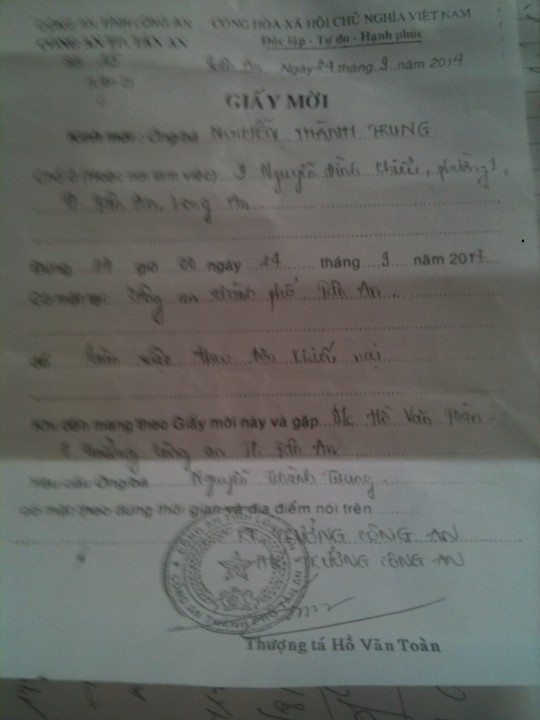 CÔNG AN TỈNH LONG AN
CỘNG HÒA XÃ HỘI CHỦ NGHĨA VIỆT NAM
CÔNG AN TP. TÂN AN
Độc lập - Tự do - Hạnh phúc
Tân An Ngày 24 tháng 9 năm 2017
GIẤY MỜI
Kính mời: Ông/bà NGUYỄN THÀNH TRUNG
Chỗ ở (hoặc nơi làm việc) 9 Nguyễn Đình Chiểu, phường 1,
TP. Tân An, Long An
giờ 00 ngày 24 tháng 9 năm 2017
Có mặt tại Công an thành phố Tân An
Để làm việc theo đơn khiếu nại
Khi đến mang theo Giấy mời này và gặp Đ/c Hồ Văn Toàn -
P. Trưởng Công an TP. Tân An
Yêu cầu Ông/bà Nguyễn Thành Trung
có mặt theo đúng thời gian và địa điểm nói trên
KT. TRƯỞNG CÔNG AN
PHÓ TRƯỞNG CÔNG AN
Thượng tá Hồ Văn Toàn